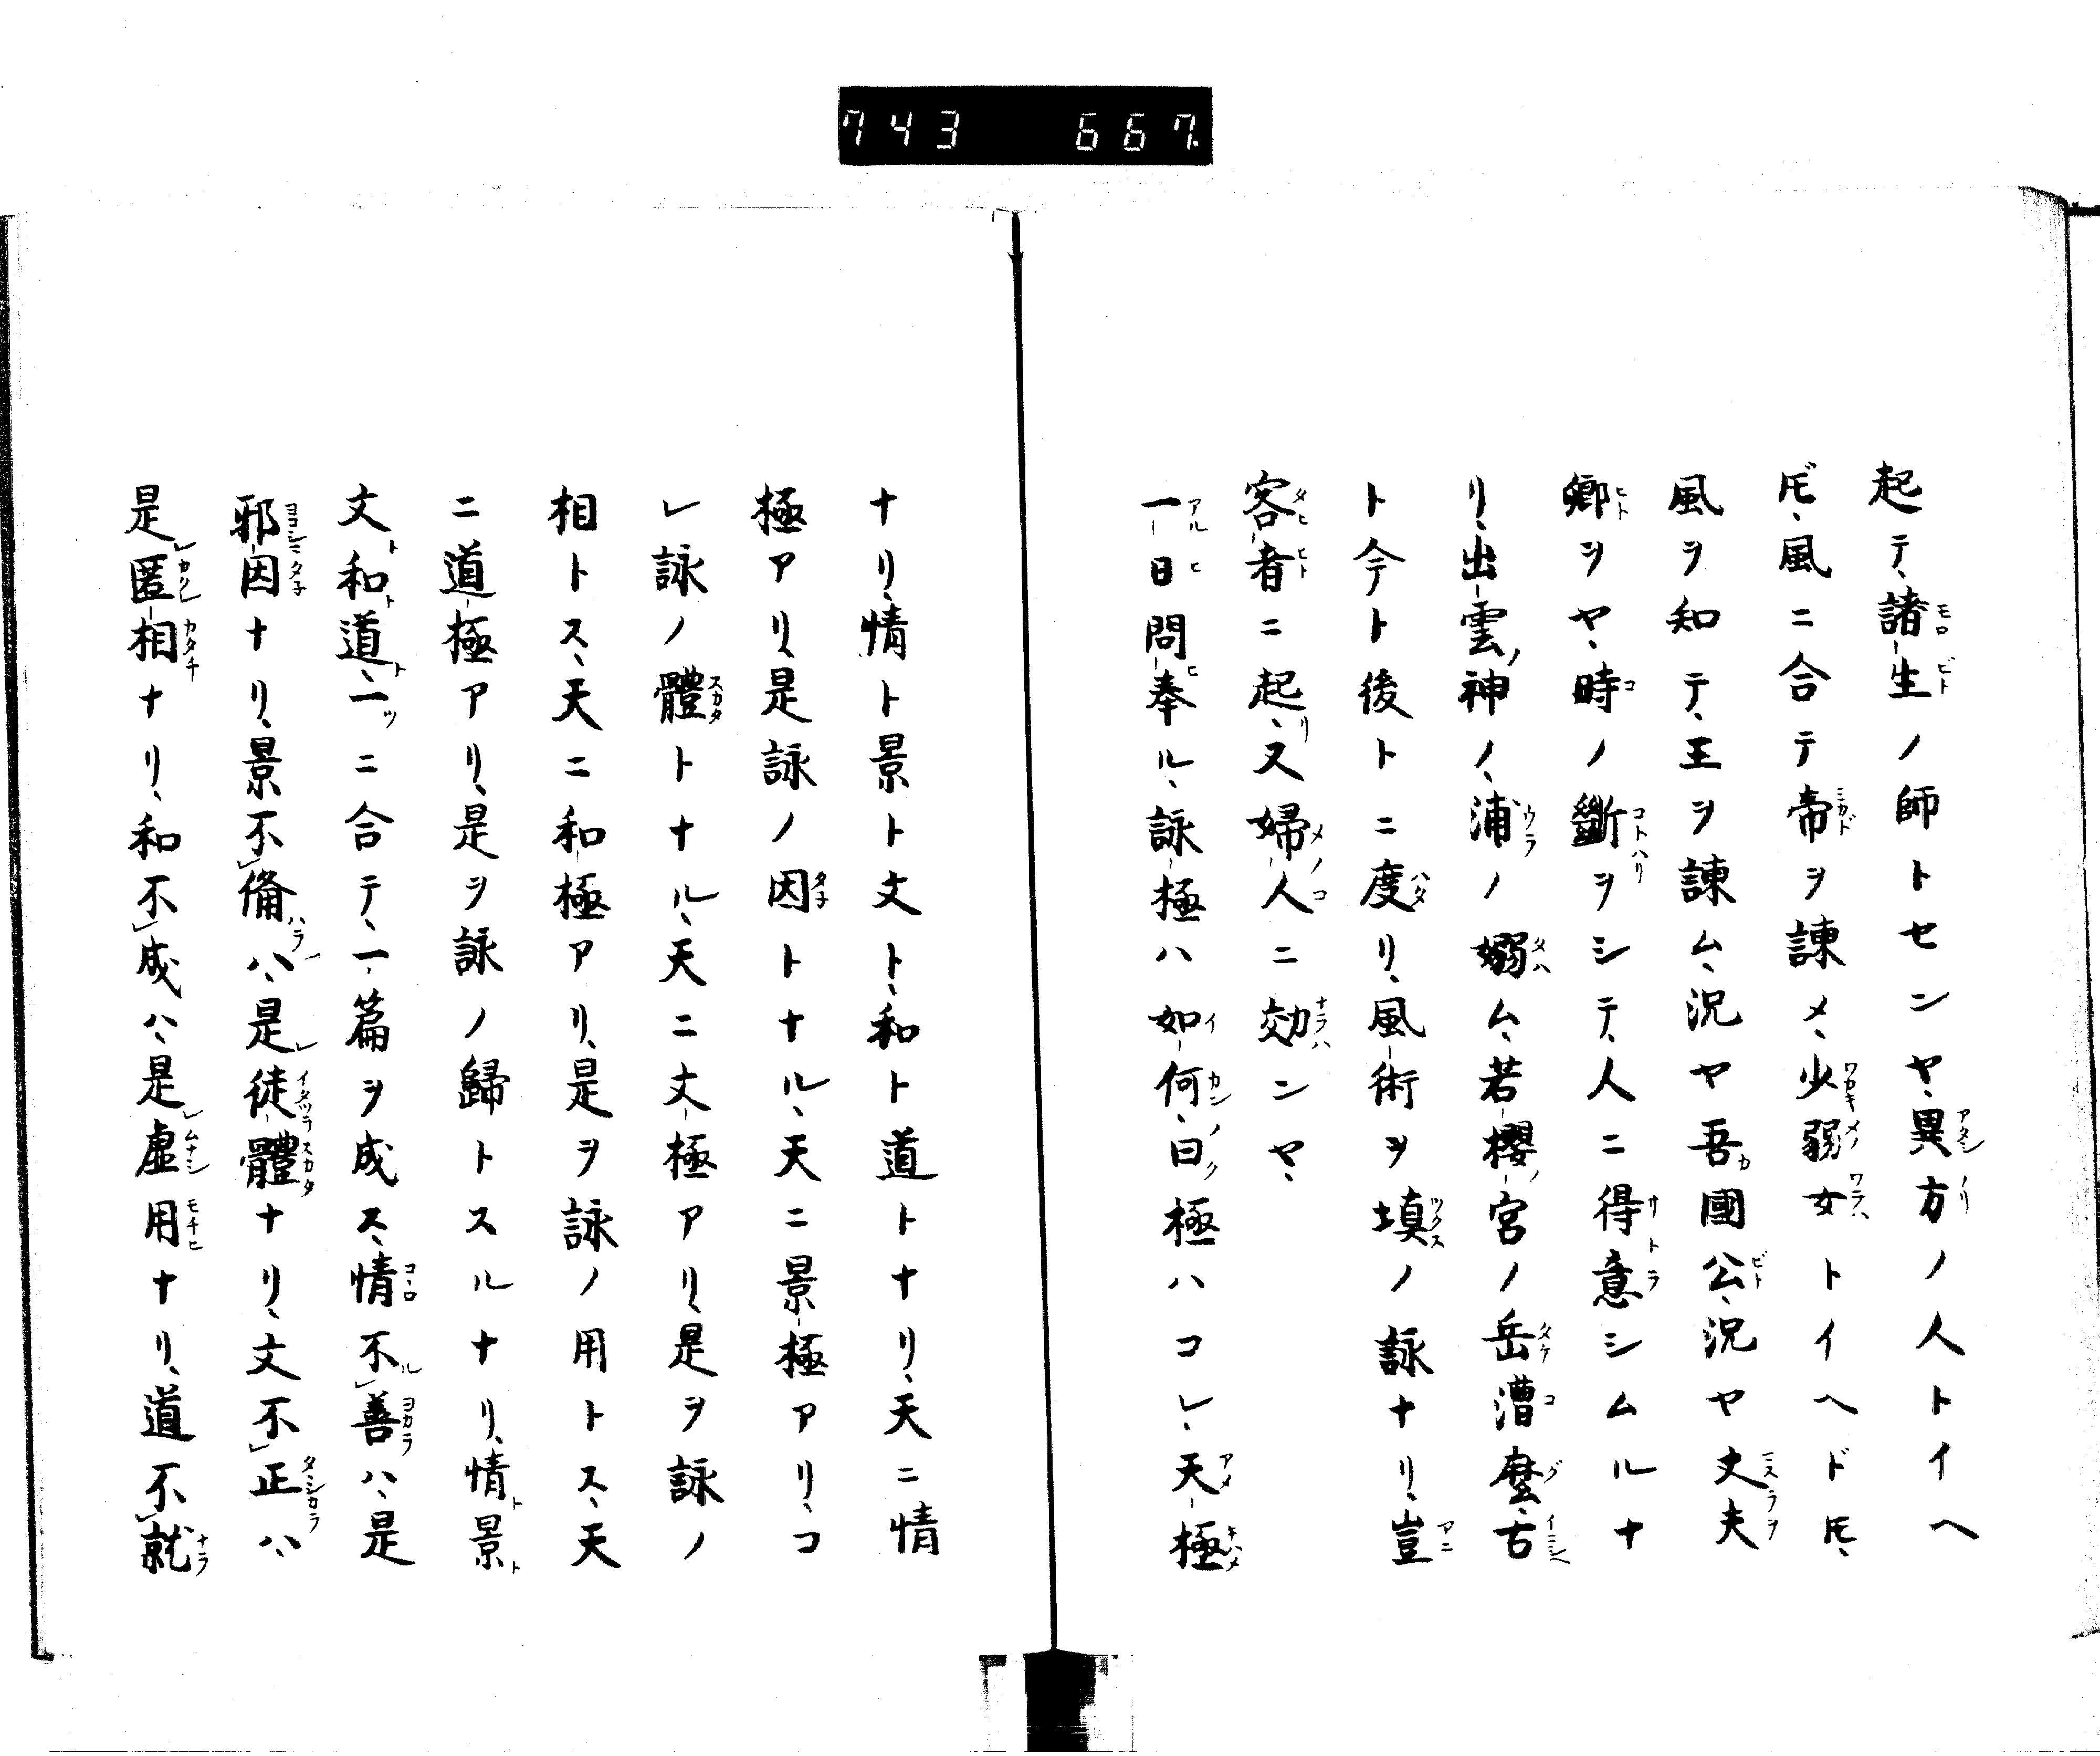 743 667
起テ、諸生ノ師トセンヤ、異方ノ人トイヘ
𪜈、風ニ合テ帝ヲ諌メ、少弱女トイヘド𪜈、
風ヲ知テ、王ヲ諌ム、況ヤ吾國公、況ヤ丈夫
卿ヲヤ、時ノ斷ヲシテ、人ニ得意シムルナ
リ、出雲ノ神ノ、浦ノ嫋ム、若櫻ノ宮ノ岳漕麼、古
ト今ト後トニ度リ、風術ヲ填ノ詠ナリ、豈
客者ニ起リ、又婦人ニ効ンヤ、
一日問奉ル、詠極ハ如何、曰極ハコレ、天極
ナリ、情ト景ト文ト、和ト道トナリ、天ニ情
極アリ、是詠ノ因トナル、天ニ景極アリ、コ
レ詠ノ體トナル、天ニ文極アリ、是ヲ詠ノ
相トス、天ニ和極アリ、是ヲ詠ノ用トス、天
ニ道極アリ、是ヲ詠ノ歸トスルナリ、情ト景ト
文ト和ト道ト、一ツニ合テ、一篇ヲ成ス、情不ルレ善ハ、是
邪因ナリ、景不レ備ハ、是レ徒體ナリ、文不レ正ハ、
是レ匿相ナリ、和不レ成ハ、是レ虛用ナリ、道不レ就